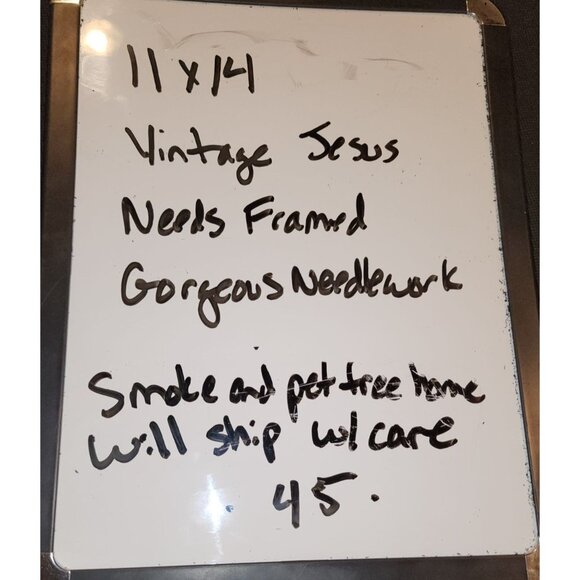 11 x 14
Vintage Jesus
Needs Framed
Gorgeous Needlework
Smoke and pet free home
Will ship w/ care
. 45.